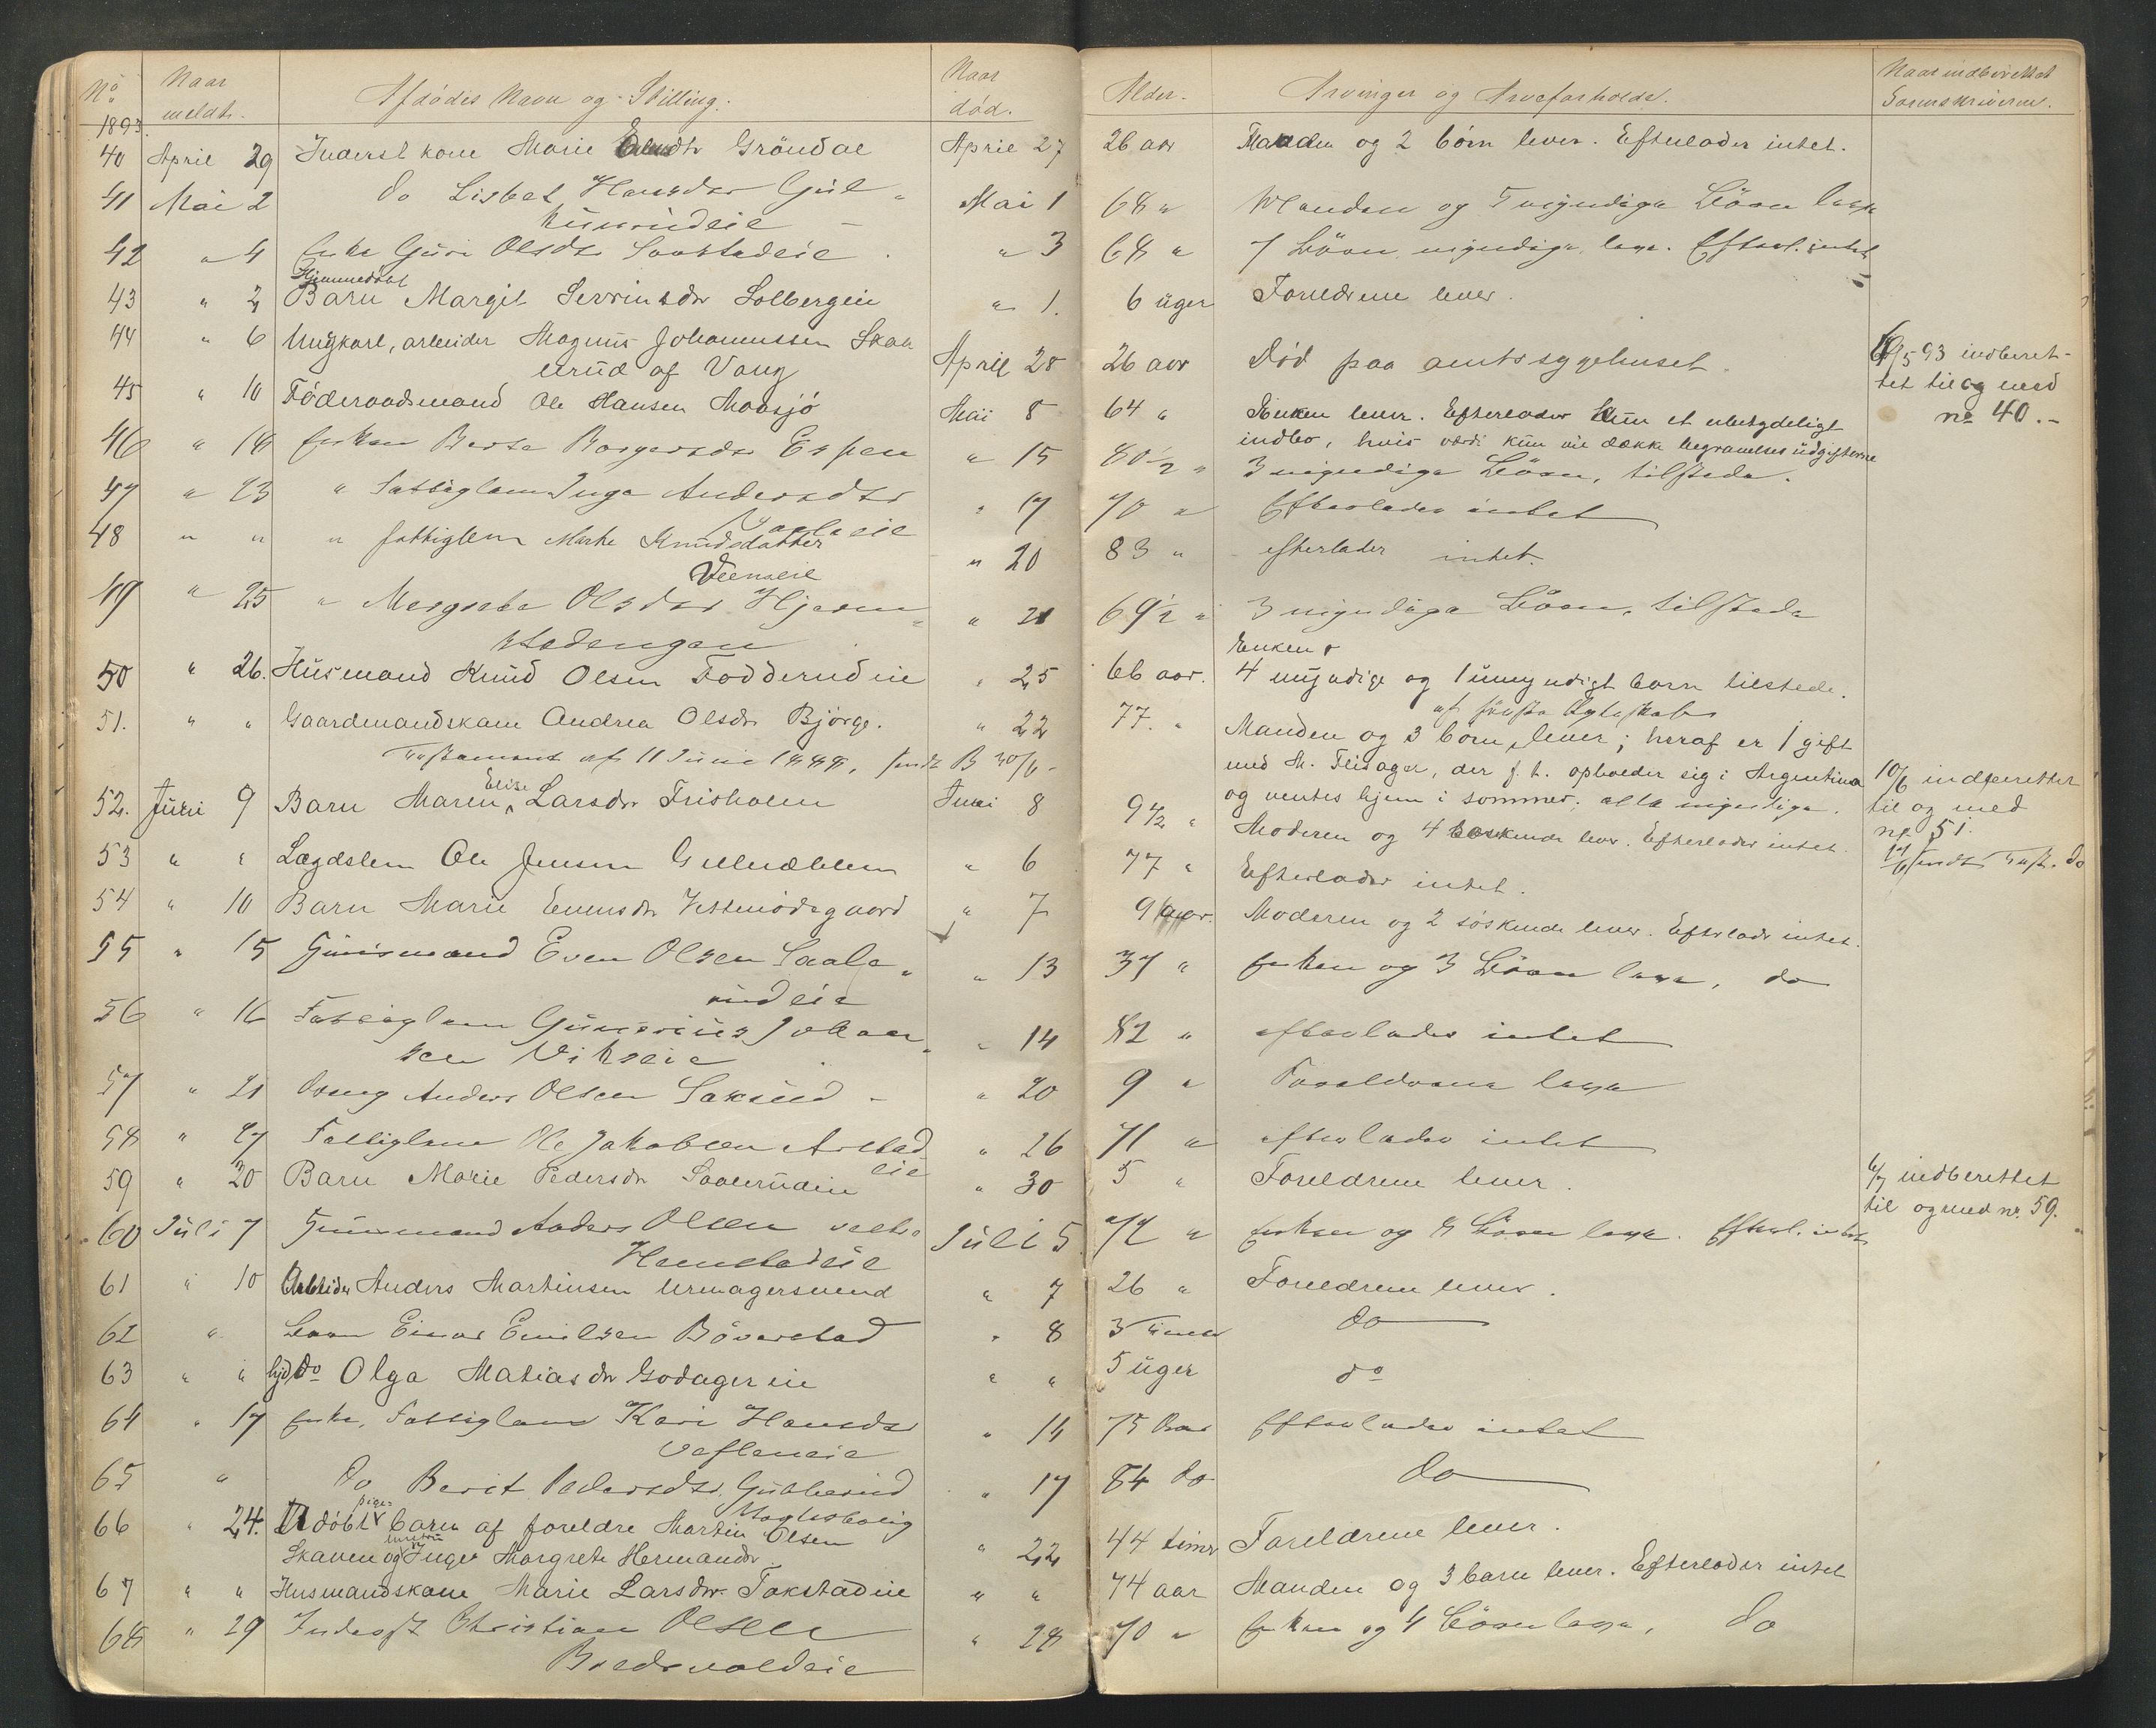 No Naar meldt. Afdödes Navn og Stilling. Naar död. Alder. Arvinger og Arveforholde. Naar indberettet Sorenskriveren.
1893.
40 April 29 Inderst kone Marie Gröndal April 27 26 aar Manden og 2 börn lever. Efterlader intet.
41 Mai 2 do Lisbet Hansdr Mai 1 68 " Manden og 5 myndige Börn leve
42 " 4 Enke Guri Olsdr " 3 68 " 7 Börn myndige, leve. Efterl. intet
Hjemmedöbt
43 " 2 Barn Margit Serrinsdr Solbergeie " 1. 6 uger Foreldrene lever.
44 " 6 Ungkarl, arbeider Magnus Johannessen Skaa
erud af Vang April 28 26 aar Död paa amtssygehuset 5 93 indberet-
tet til og med
no 40.-
45 " 10 Föderaadsmand Ole Hansen Maasjö Mai 8 64 " Enken lever. Efterlader kun et ubetydeligt
indbo, hvis værdi kun vil dække begravelsesudgifterne
46 " 18 Enken Berte Borgersdr Espen " 15 80 1/2 " 3 myndige Börn, tilstede.
47 " 23 " Fattiglem Inga Andersdr " 17 70 " Efterlader intet
48 " " " fattiglem Marthe Knudsdatter
Veenseie " 20 83 " efterlader intet.
49 " 25 " Margrete Olsdr Hjerm-
stadengen " 21 69 1/2 " 3 myndige Börn, tilstede
Enken o
50 " 26. Husmand Knud Olsen Fodderudeie " 25 66 aar. 4 mynдige og 1 umyndigt barn tilstede.
51. " " Gaardmandskone Andrea Olsdr Bjørge. " 22 77. " Manden og 3 börn lever; heraf er 1 gift
af förste Ægteskab
Testament af 11 Juni 1888, sendt B 30/6 - med M. Fleisager, der f. t. opholder sig i Argentina
og ventes hjem i sommer. alle myndige.
10/6 indberettet
til og med
no 51.
52. Juni 9 Barn Maren Elise Larsdr Frisholm Juni 8 9 1/2 " Moderen og 4 söskende lever. Efterlader intet.
53 " " Lægdslem Ole Jensen " 6 77 " Efterlader intet.
54 " 10 Barn Marie Evensdr " 7 9 aar. Moderen og 2 söskende lever. Efterlader intet.
55 " 15 Huusmand Even Olsen Saale-
rudeie " 13 37 " Enken og 3 Börn leve, do
56 " 16 Fattiglem Gunerius Johan-
sen Vikseie " 14 82 " efterlader intet
57 " 21 Dreng Anders Olsen Saxlund " 20 9 " Forældrene leve
58 " 27 Fattiglem Ole Jakobsen Arstad
eie " 26 71 " efterlader intet
59 " 30 Barn Marie Pedersdr Saalerudeie " 30 5 " Foreldrene lever. 6/7 indberettet
til og med no. 59.
60 Juli 7 Huusmand Anders Olsen
Hemstadeie Juli 5 72 " Enken og 8 Börn leve. Efterl. intet
61 " 10 Arbeider Anders Martinsen urmagersvend " 7 26 " Foreldrene lever.
62 " Barn Einar Emilsen Böverstad " 8 3 Timer do
63 " " hjd do Olga Matiasdr Godagereie " " 5 uger do
64 " 17 Enke, Fattiglem Kari Hansdr
Veflaneie " 14 75 Aar Efterlader intet
65 " Do Berit Pedersdr. Gubberud " 17 84 do do
66 " 24. Udöbt pige barn af foreldre Martin Olsen
Skaven og hustru Inger Margrete Hermansdr. " 22 44 timer Foreldrene lever.
67 " " Husmandskone Marie Larsdr. Tokstadeie " " 74 aar Manden og 3 barn lever. Efterlader intet
68 " 29 Inderst Christian Olsen
Bredsvoldeie " 28 70 " Enken og 4 Börn leve, do